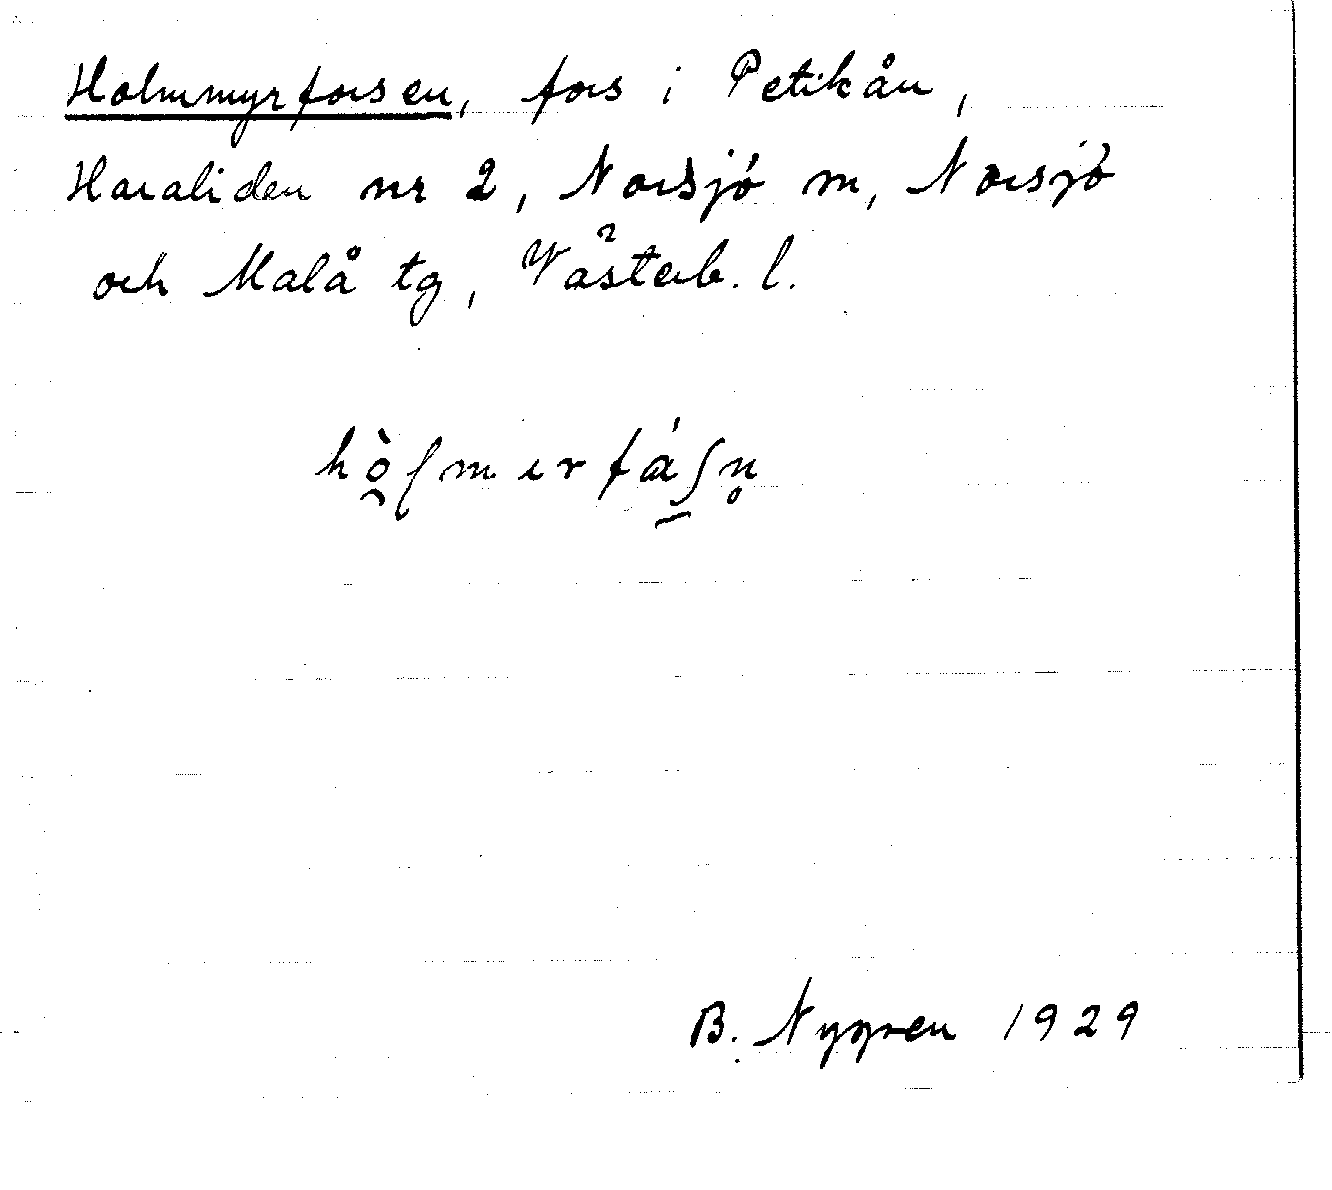 Holmmyrforsen, fors i Petikån,
Haraliden nr 2, Norsjö m, Norsjö
och Malå tg, Västerb. l.
hò̯ʃmırfá̠ʃn̥
B. Nygren 1929